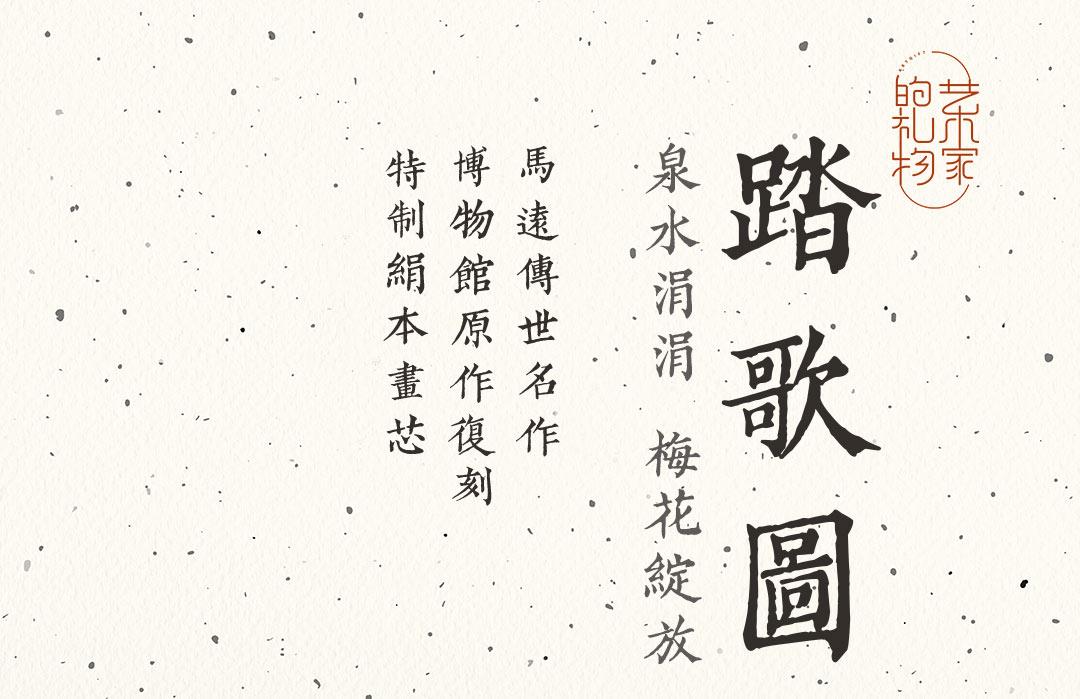 艺术家
的礼物
踏歌圖
泉水涓涓 梅花綻放
馬遠傳世名作
博物館原作復刻
特制絹本畫芯